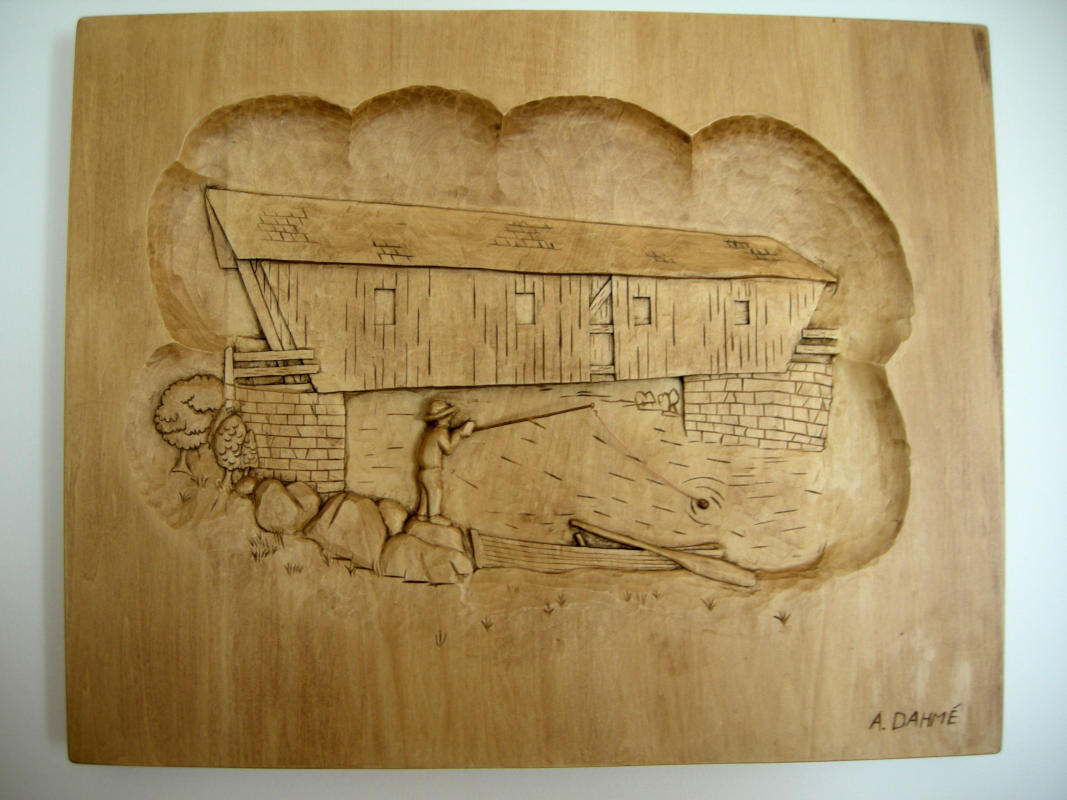 A. DAHMÉ